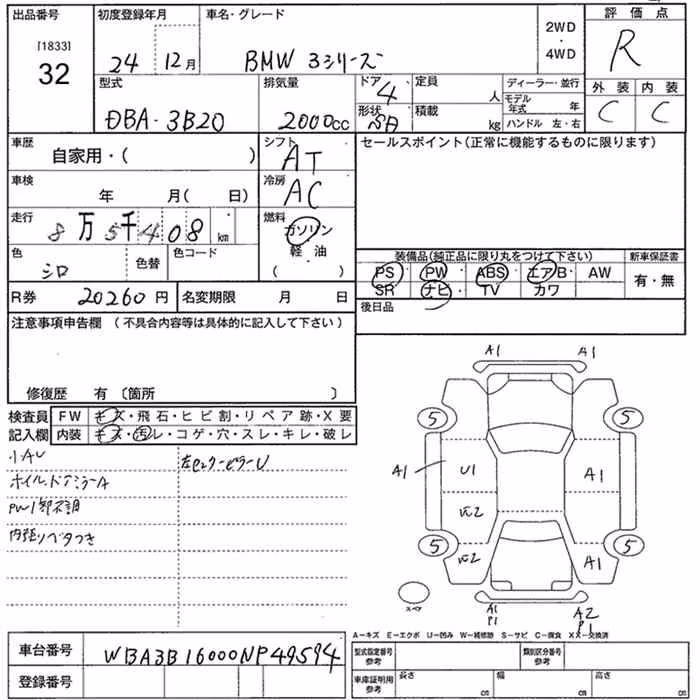 出品番号 初度登録年月 車名・グレード 2WD・4WD 評価点
[1833]
32 24 12月 BMW 3シリーズ R
型式 排気量 ドア 4 定員 人 ディーラー・並行 外装 内装
DBA-3B20 2000cc 形状 積載 kg モデル年式 年 ハンドル 左・右 C C
車歴 自家用・( ) シフト AT セールスポイント(正常に機能するものに限ります)
車検 年 月( 日) 冷房 AC
走行 8万5千408km 燃料 ガソリン
軽油
( )
色 シロ 色替 色コード 装備品(純正品に限り丸をつけて下さい) 新車保証書
PS PW ABS エアB AW 有・無
SR ナビ TV カワ
R券 20260円 名変期限 月 日 後日品
注意事項申告欄(不具合内容等は具体的に記入して下さい)
修復歴 有(箇所 )
検査員 FW キズ・飛石・ヒビ割・リペア跡・X要
記入欄 内装 キズ・汚レ・コゲ・穴・スレ・キレ・破レ
小AU
ホイル、ドアミラーA
PW1部不調
内張りベタつき
A1 A1
5 5
A1 U1 A1
2
5 5
2 A1
スペア
A1 P1 A2 P1
A−キズ E−エクボ U−凹み W−補修跡 S−サビ C−腐食 XX−交換済
車台番号 WBA3B16000NP49594 型式指定番号 参考 類別区分番号 参考
登録番号 車庫証明用 参考 長さ cm 幅 cm 高さ cm